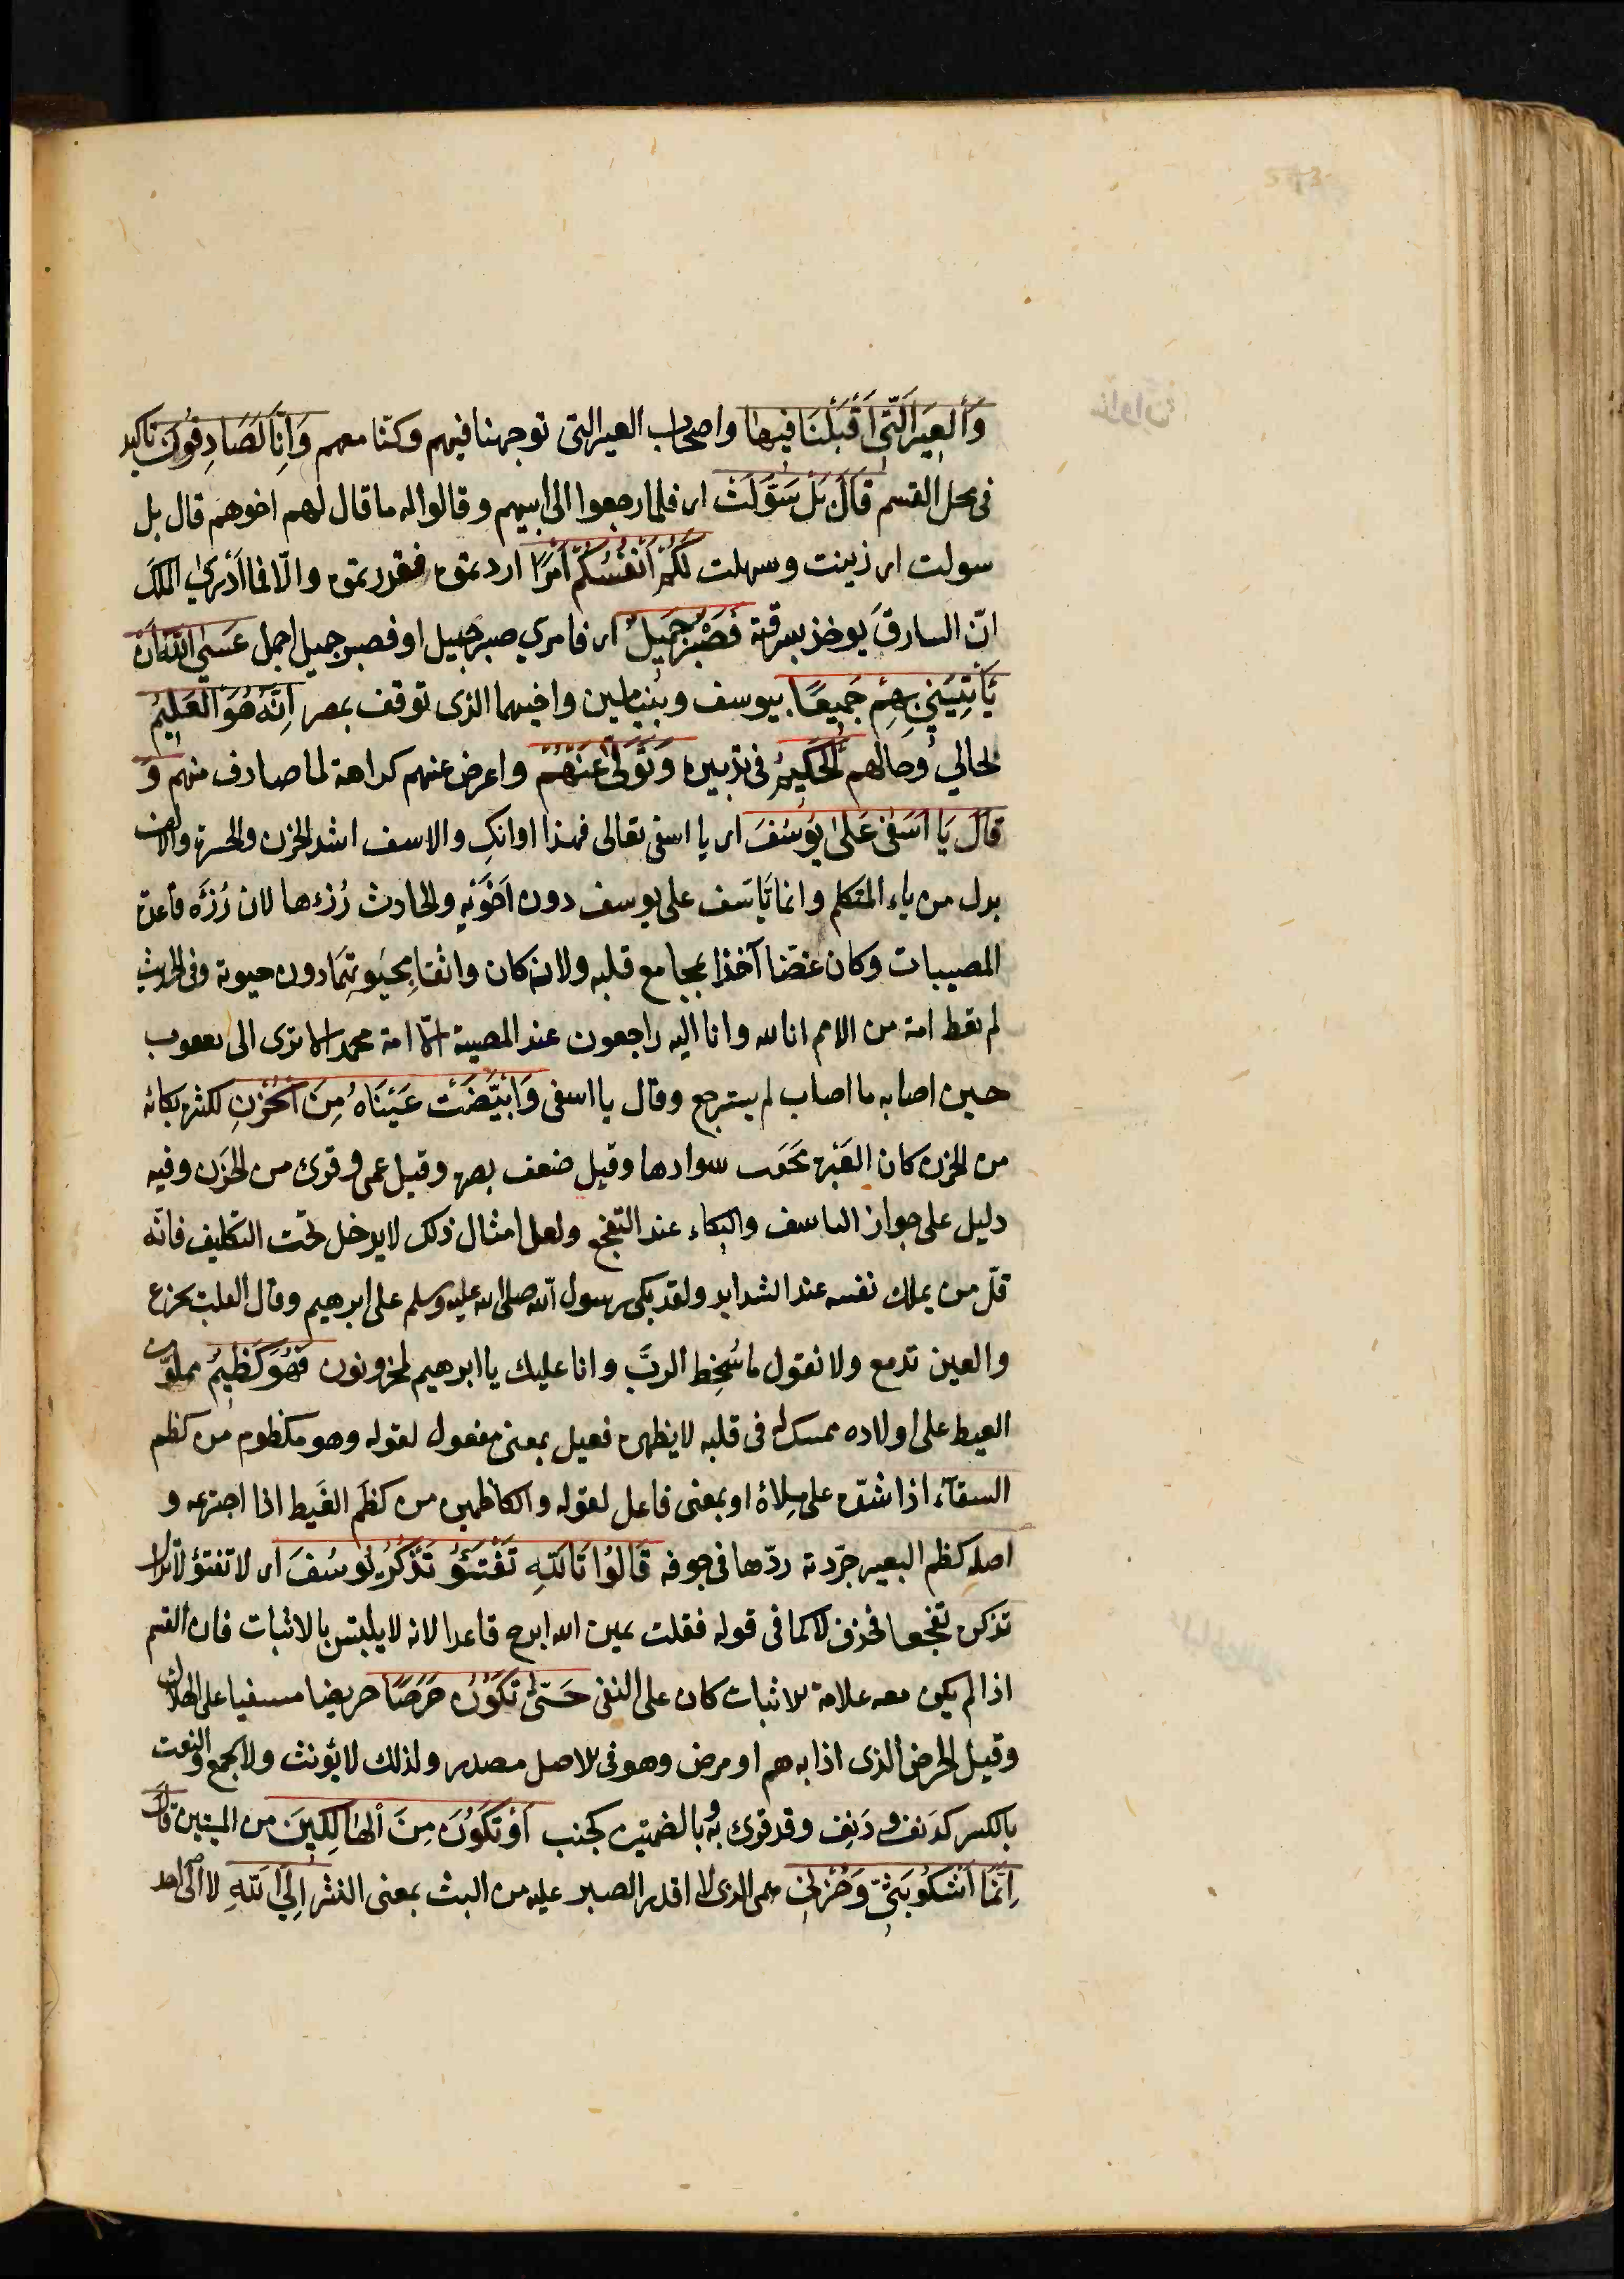 وَٱلْعِيرَ ٱلَّتِي أَقْبَلْنَا فِيهَا واصحاب العير التى توجهنا فيهم وكنّا معهم وَإِنَّا لَصَادِقُونَ تاكيد
فى محل القسم قَالَ بَلْ سَوَّلَتْ اى فلما رجعوا الى ابيهم وقالوا له ما قال لهم اخوهم قال بل
سولت اى زينت وسهلت لَكُمْ أَنْفُسُكُمْ أَمْرًا اردتموه فقررتموه والّا فما اَدْرىٰ الملكَ
انّ السارقَ يوخذ بسرقته فَصَبْرٌ جَمِيلٌ اى فامري صبر جميل او فصبر جميل اجمل عَسَى ٱللَّهُ أَنْ
يَأْتِيَنِي بِهِمْ جَمِيعًا بيوسف وبنيامين واخيهما الذى توقف بمصر إِنَّهُ هُوَ ٱلْعَلِيمُ
لحالي وحالهم ٱلْحَكِيمُ فى تدبيره وَتَوَلَّى عَنْهُمْ واعرض عنهم كراهة لما صادف منهم وَ
قَالَ يَا أَسَفَى عَلَى يُوسُفَ اى يا اسفى تعالى فهذا اوانكِ والاسف اشد الحزن والحسرة والالف
بدل من ياء المتكلم وانما تَاَسّف على يوسف دون اَخَوَيْهِ والحادث رُزءها لان رُزْءَه قاعدة
المصيبات وكان غضّا آخذا بمجامع قلبه ولانه كان واثقا بحيٰوتهما دون حيوته وفى الحديث
لم تعط امة من الامم انا لله وانا اليه راجعون عند المصيبة الّا امة محمد الا ترى الى يعقوب
حين اصابه ما اصاب لم يسترجع وقال يا اسفى وَٱبْيَضَّتْ عَيْنَاهُ مِنَ ٱلْحُزْنِ لكثرة بكائه
من الحزن كان العَبْرة محَقت سوادها وقيل ضعف بصره وقيل عمى وقرئ من الحَزَن وفيه
دليل على جواز التاسف والبكاء عند التفجع ولعل امثال ذلك لا يدخل تحت التكليف فانّه
قلّ من يملك نفسه عند الشدايد ولقد بكى رسول الله صلى الله عليه وسلم على ابرهيم وقال القلب يجزع
والعين تدمع ولا نقول ما يُسْخِط الربَّ وانا عليك يا ابرهيم لمحزونون فَهُوَ كَظِيمٌ مملوّ من
الغيط على اولاده ممسك له فى قلبه لا يظهره فعيل بمعنى مفعول لقوله وهو مكظوم من كظم
السقآء اذا شدّه على مِلاءٰه او بمعنى فاعل لقوله والكاظمين من كظَم الغَيط اذا اجترعه و
اصله كظم البعير جرّدته ردّها فى جوفه قَالُوا تَاللَّهِ تَفْتَؤُ تَذْكُرُ يُوسُفَ اى لا تفتؤ لا تزال
تذكره تفجعا فحذف لا كما فى قوله فقلت يمين الله ابرح قاعدا لانه لا يلبتس بالاثبات فان القسم
اذا لم يكن معه علامة للاثبات كان على النفى حَتَّى تَكُونَ حَرَضًا حريضا مسفيا على الهلاك
وقيل الحرض الذى اذا به هم او مرض وهو فى للاصل مصدر ولذلك لا يؤنث ولا يجمع والنعت
بالكسر كدَنَف ودَنِف وقد قرئ به وبالضمتين كجنب أَوْ تَكُونَ مِنَ ٱلْهَالِكِينَ من الميّتين قَالَ
إِنَّمَا أَشْكُو بَثِّي وَحُزْنِي همى الذى لا اقدر الصبر عليه من البث بمعنى النشر إِلَى ٱللَّهِ لا الى احد